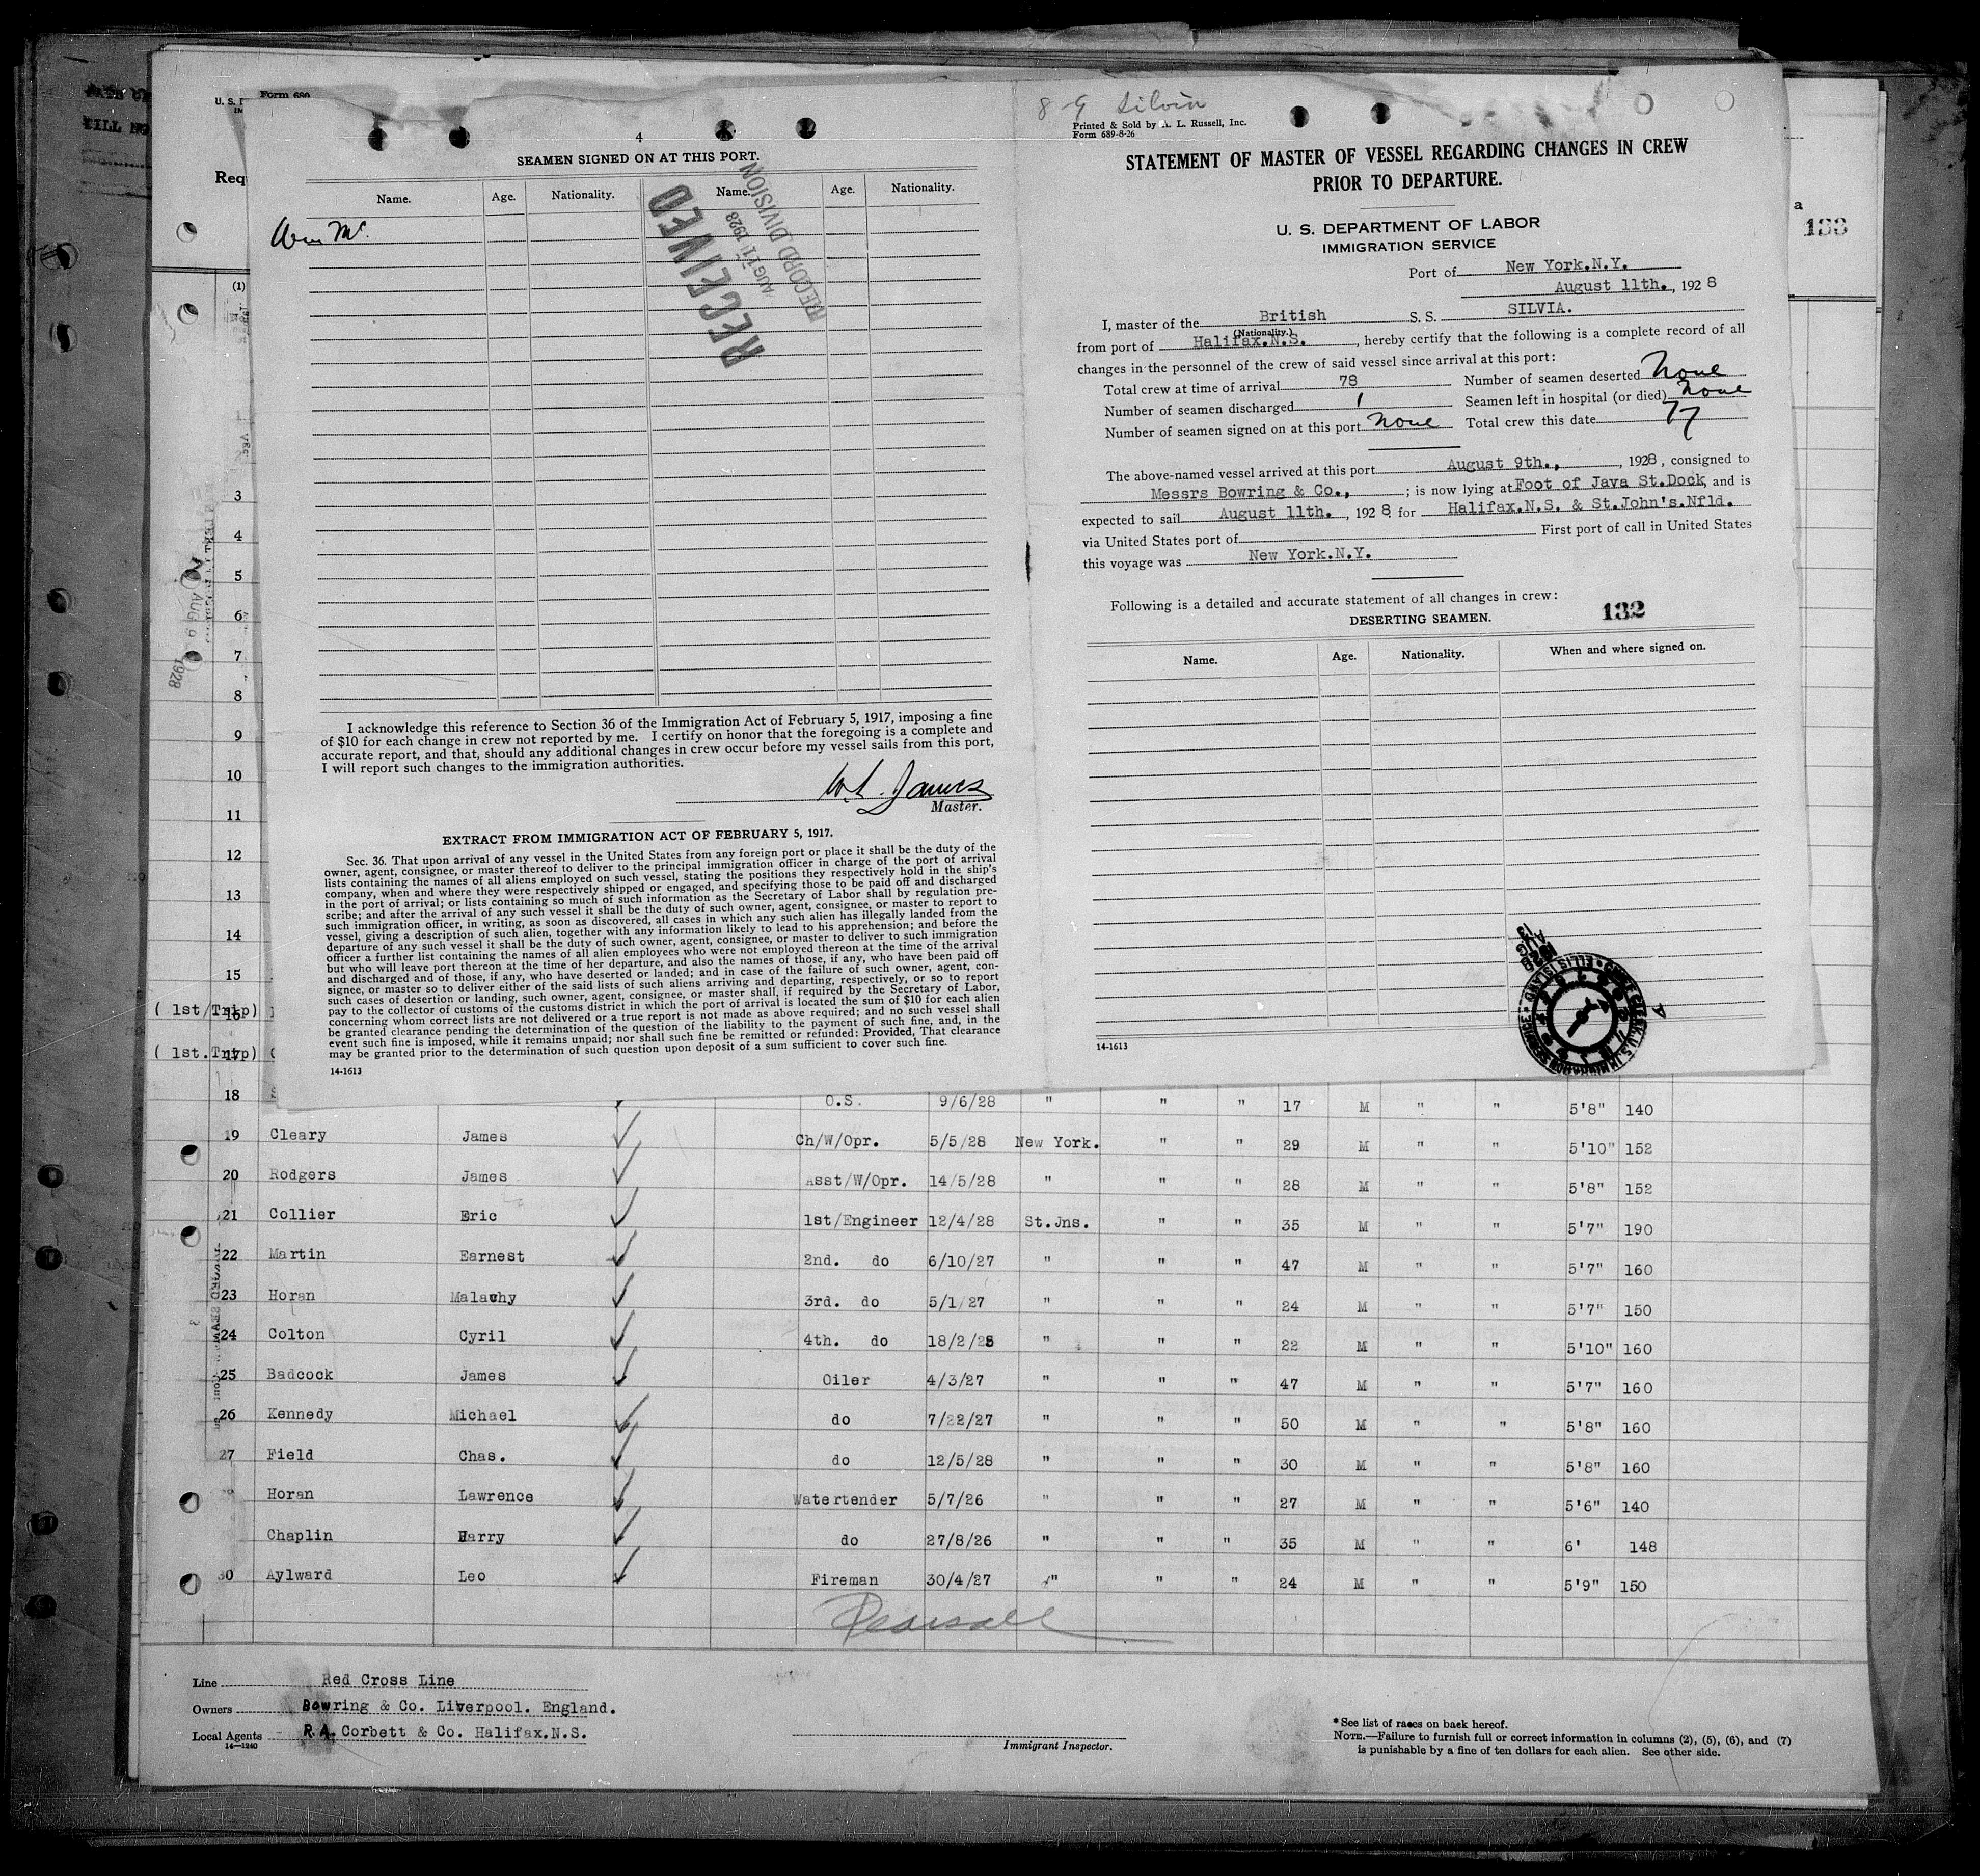 U. S. I
Form 689
Req
(1)
4
SEAMEN SIGNED ON AT THIS PORT.
Name. Age. Nationality. Name. Age. Nationality.
Wm Mc.
RECEIVED
AUG 11 1928
RECORD DIVISION
I acknowledge this reference to Section 36 of the Immigration Act of February 5, 1917, imposing a fine
of $10 for each change in crew not reported by me. I certify on honor that the foregoing is a complete and
accurate report, and that, should any additional changes in crew occur before my vessel sails from this port,
I will report such changes to the immigration authorities.
Master.
EXTRACT FROM IMMIGRATION ACT OF FEBRUARY 5, 1917.
Sec. 36. That upon arrival of any vessel in the United States from any foreign port or place it shall be the duty of the
owner, agent, consignee, or master thereof to deliver to the principal immigration officer in charge of the port of arrival
lists containing the names of all aliens employed on such vessel, stating the positions they respectively hold in the ship's
company, when and where they were respectively shipped or engaged, and specifying those to be paid off and discharged
in the port of arrival; or lists containing so much of such information as the Secretary of Labor shall by regulation pre-
scribe; and after the arrival of any such vessel it shall be the duty of such owner, agent, consignee, or master to report to
such immigration officer, in writing, as soon as discovered, all cases in which any such alien has illegally landed from the
vessel, giving a description of such alien, together with any information likely to lead to his apprehension; and before the
departure of any such vessel it shall be the duty of such owner, agent, consignee, or master to deliver to such immigration
officer a further list containing the names of all alien employees who were not employed thereon at the time of the arrival
but who will leave port thereon at the time of her departure, and also the names of those, if any, who have been paid off
and discharged and of those, if any, who have deserted or landed; and in case of the failure of such owner, agent, con-
signee, or master so to deliver either of the said lists of such aliens arriving and departing, respectively, or so to report
such cases of desertion or landing, such owner, agent, consignee, or master shall, if required by the Secretary of Labor,
pay to the collector of customs of the customs district in which the port of arrival is located the sum of $10 for each alien
concerning whom correct lists are not delivered or a true report is not made as above required; and no such vessel shall
be granted clearance pending the determination of the question of the liability to the payment of such fine, and, in the
event such fine is imposed, while it remains unpaid; nor shall such fine be remitted or refunded: Provided, That clearance
may be granted prior to the determination of such question upon deposit of a sum sufficient to cover such fine.
14-1613
8 9 Silvia
Printed & Sold by A. L. Russell, Inc.
Form 689-8-26
STATEMENT OF MASTER OF VESSEL REGARDING CHANGES IN CREW
PRIOR TO DEPARTURE.
U. S. DEPARTMENT OF LABOR
IMMIGRATION SERVICE
Port of New York.N.Y.
August 11th., 1928
I, master of the British S. S. SILVIA.
(Nationality.)
from port of Halifax.N.S. , hereby certify that the following is a complete record of all
changes in the personnel of the crew of said vessel since arrival at this port:
Total crew at time of arrival 78 Number of seamen deserted None
Number of seamen discharged 1 Seamen left in hospital (or died) None
Number of seamen signed on at this port None Total crew this date 77
The above-named vessel arrived at this port August 9th., , 1928, consigned to
Messrs Bowring & Co., ; is now lying at Foot of Java St.Dock, and is
expected to sail August 11th. , 1928 for Halifax.N.S. & St.John's.Nfld.
via United States port of First port of call in United States
this voyage was New York.N.Y.
Following is a detailed and accurate statement of all changes in crew:
132
DESERTING SEAMEN.
Name. Age. Nationality. When and where signed on.
14-1613
1928 AUG 13
ELLIS ISLAND
a
133
AUG 9 1928
3
4
5
6
7
8
9
10
11
12
13
14
15
( 1st/Trip) 16
( 1st.Trip) 17
18 O.S. 9/6/28 " " " 17 M " " 5'8" 140
19 Cleary James Ch/W/Opr. 5/5/28 New York. " " 29 M " " 5'10" 152
20 Rodgers James Asst/W/Opr. 14/5/28 " " " 28 M " " 5'8" 152
21 Collier Eric 1st/Engineer 12/4/28 St.Jns. " " 35 M " " 5'7" 190
22 Martin Earnest 2nd. do 6/10/27 " " " 47 M " " 5'7" 160
23 Horan Malachy 3rd. do 5/1/27 " " " 24 M " " 5'7" 150
24 Colton Cyril 4th. do 18/2/28 " " " 22 M " " 5'10" 160
25 Badcock James Oiler 4/3/27 " " " 47 M " " 5'7" 160
26 Kennedy Michael do 7/22/27 " " " 50 M " " 5'8" 160
27 Field Chas. do 12/5/28 " " " 30 M " " 5'8" 160
Horan Lawrence Watertender 5/7/26 " " " 27 M " " 5'6" 140
Chaplin Harry do 27/8/26 " " " 35 M " " 6' 148
30 Aylward Leo Fireman 30/4/27 " " " 24 M " " 5'9" 150
Pearsall
Line Red Cross Line
Owners Bowring & Co. Liverpool. England.
Local Agents R.A. Corbett & Co. Halifax.N.S.
14—1240
Immigrant Inspector.
*See list of races on back hereof.
NOTE.—Failure to furnish full or correct information in columns (2), (5), (6), and (7)
is punishable by a fine of ten dollars for each alien. See other side.